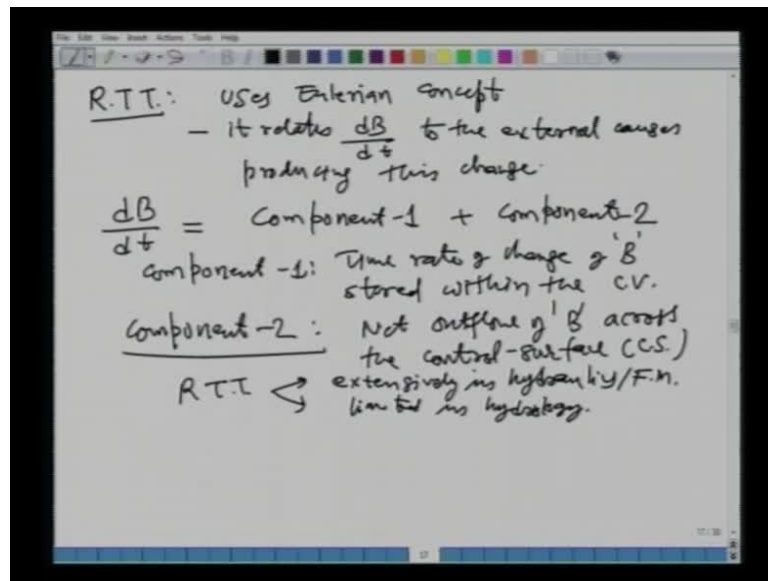 File Edit View Insert Actions Tools Help
R.T.T.: Uses Eulerian concept
— it relates dB/dt to the external causes
producing this change.
dB/dt = Component-1 + Component-2
Component-1: Time rate of change of 'B'
stored within the C.V.
Component-2: Net outflow of 'B' across
the control-surface (C.S.)
R.T.T. extensively in hydraulics/F.M.
limited in hydrology.
17